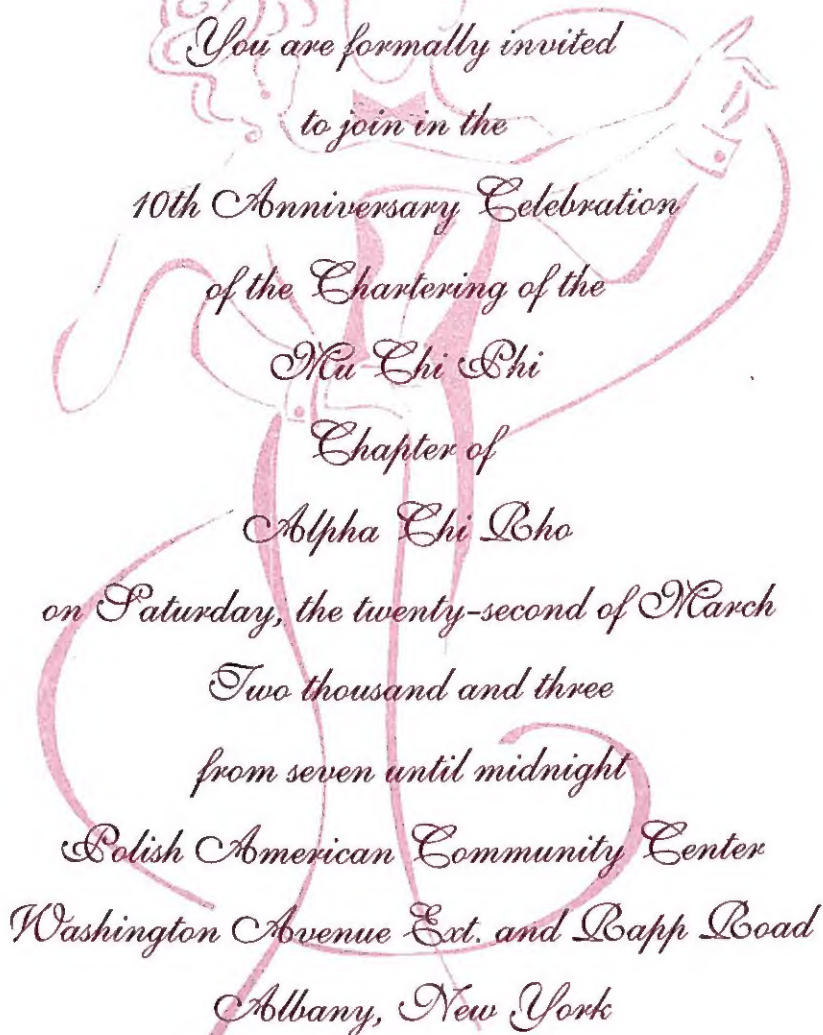 You are formally invited
to join in the
10th Anniversary Celebration
of the Chartering of the
Mu Chi Phi
Chapter of
Alpha Chi Rho
on Saturday, the twenty-second of March
Two thousand and three
from seven until midnight
Polish American Community Center
Washington Avenue Ext. and Rapp Road
Albany, New York